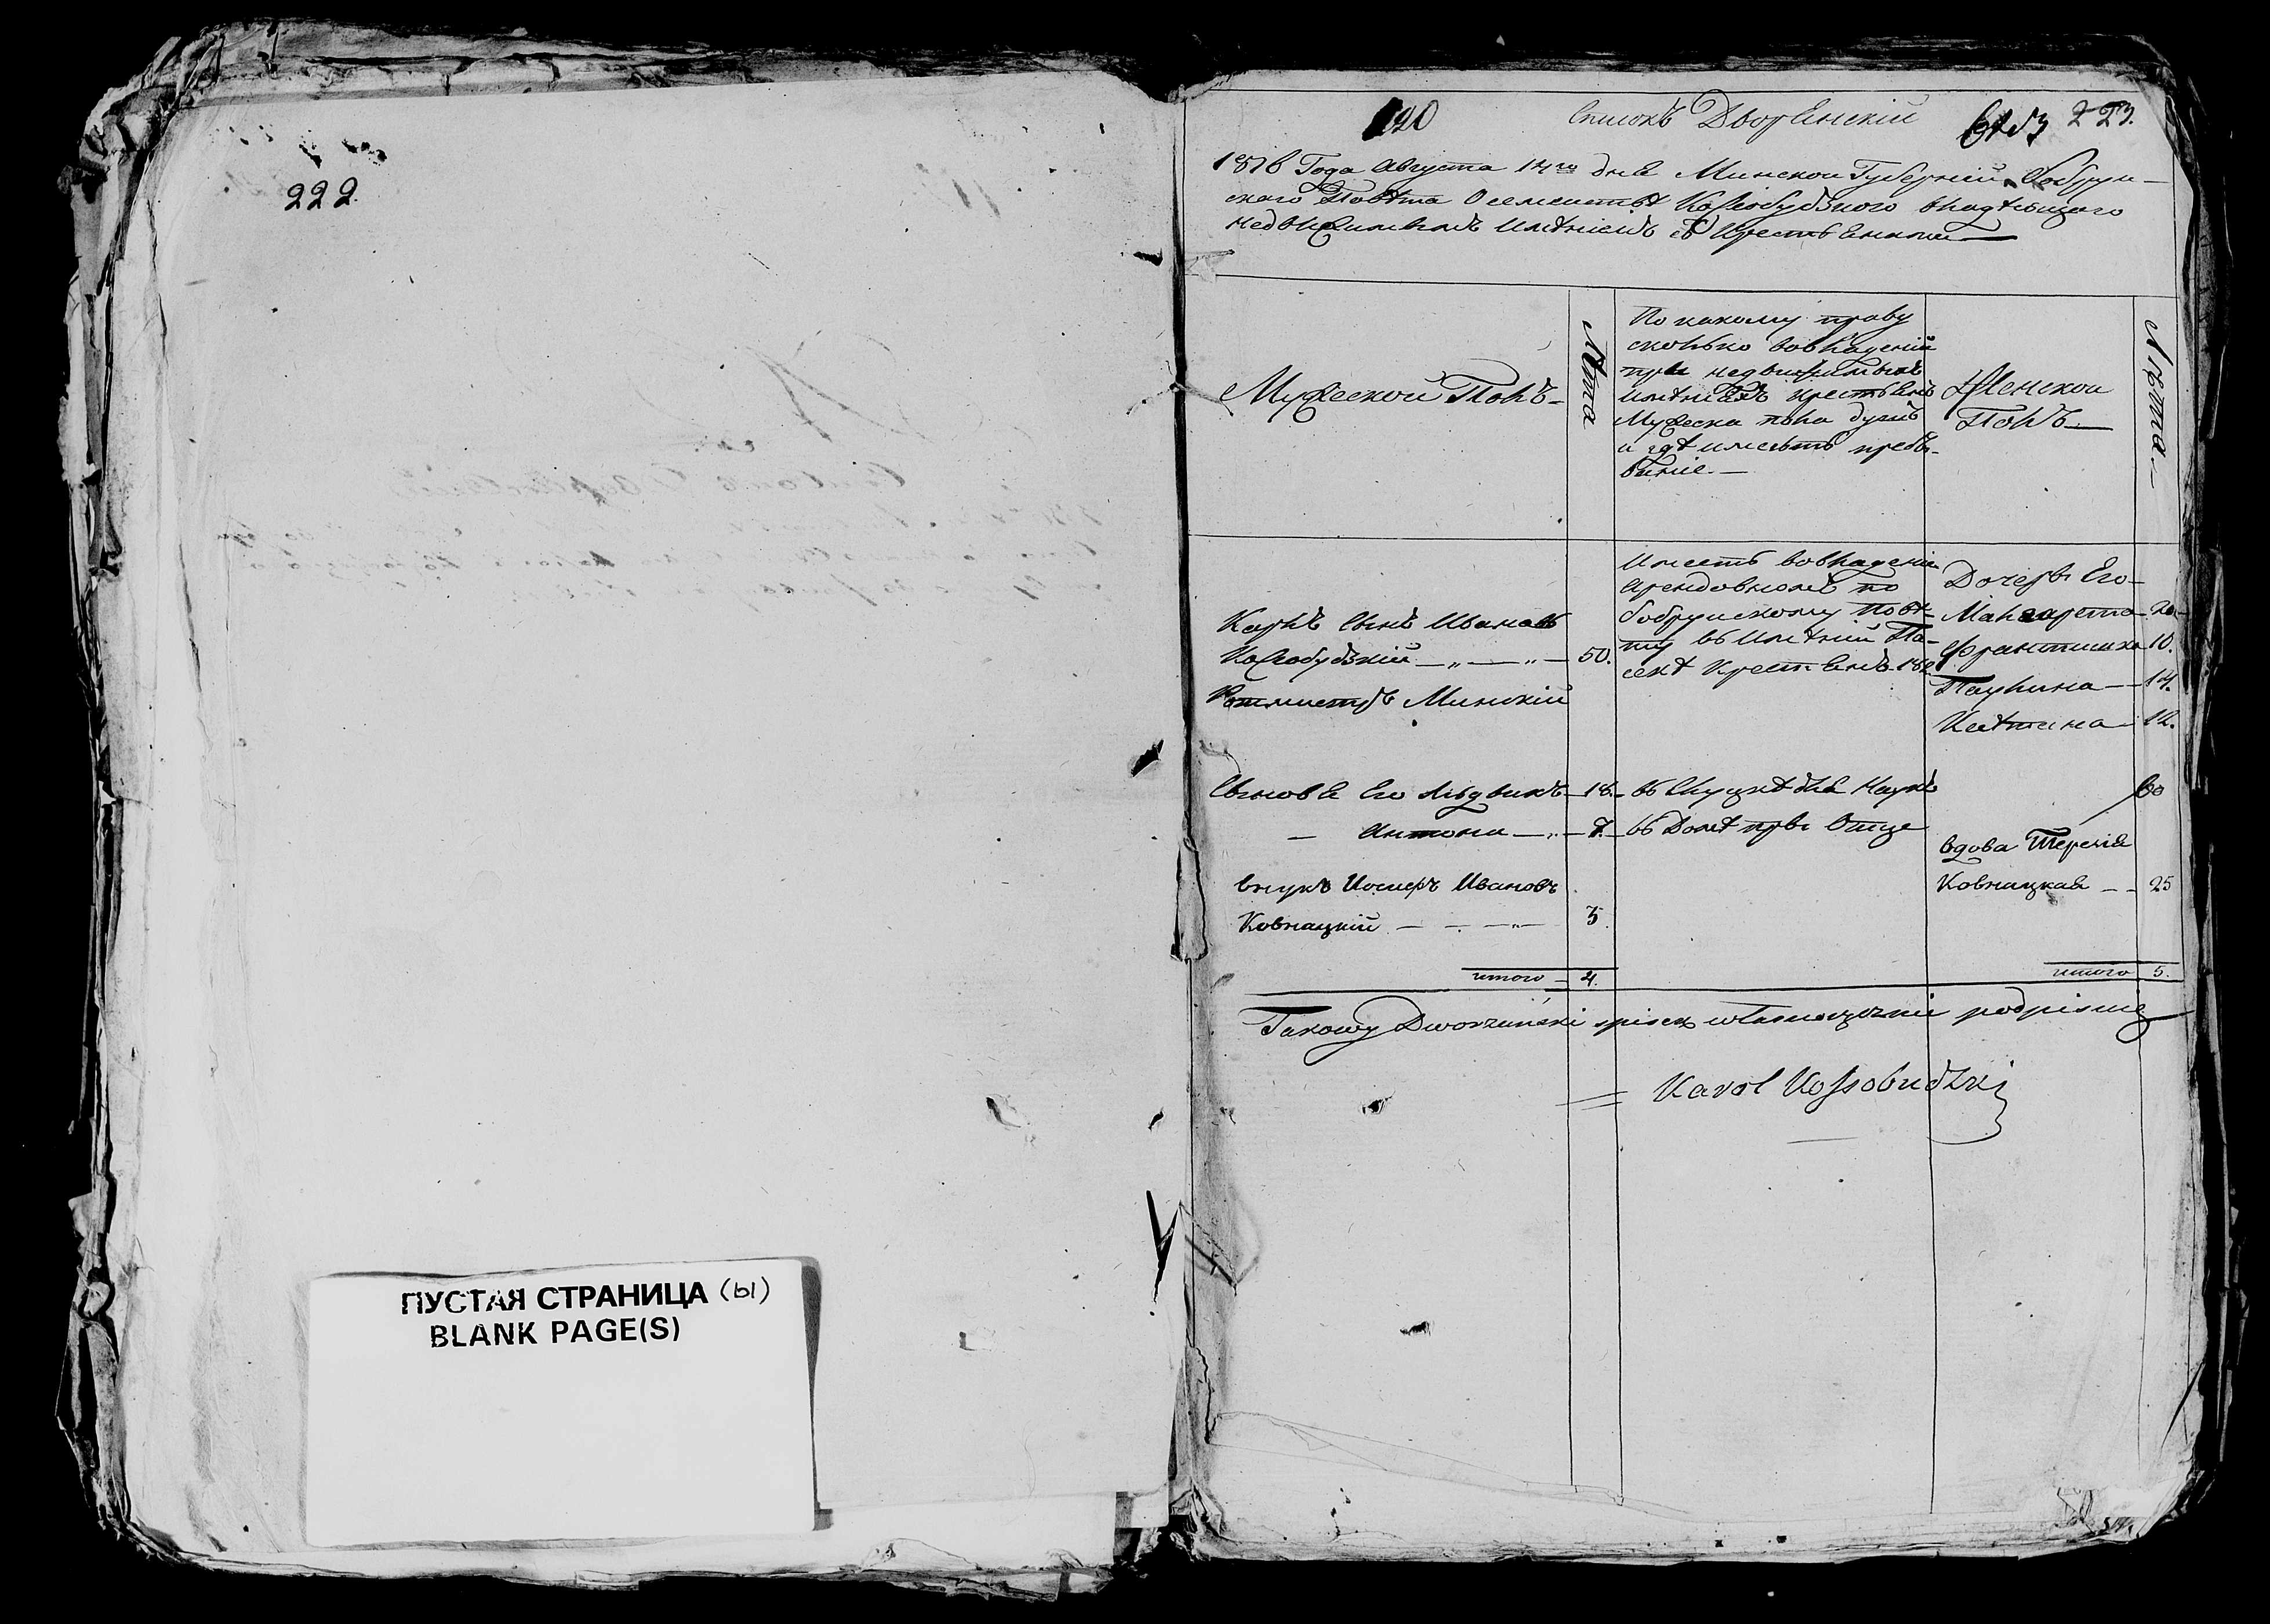 222.
ПУСТАЯ СТРАНИЦА (ы)
BLANK PAGE(S)
120 Списокъ Дворянскій 223.
1816 Года Августа 14го дня Минской Губерніи Бобруи-
скаго Повѣта О семействѣ Кособудзкого владѣющаго
недвижимымъ имѣніемъ съ Крестьянами
Мужеской Полъ
Лѣта
По какому праву
сколько во владеніи
при недвижимыхъ
имѣніяхъ крестьянъ
Мужеска пола душъ
и гдѣ имеетъ пребы-
ваніе.
Женской
Полъ
Лѣта
Карлъ Сынъ Ивановъ
Кособудзкій — „ — „ — 50.
Ротмистръ Минскій
Имеетъ во владеніи
арендовномъ по
бобруйскому повѣ-
ту въ имѣніи Па-
секѣ Крестьянъ 182
Дочери Его
Маргарета 20
Франтишка 10.
Паулина — 14.
Кастына 12.
Сыновья Его Людвикъ — 18. въ Слуцкѣ для Наукъ
— Антони — „ — 7. въ Домѣ при Отце
60
внукъ Иосифъ Ивановъ
Ковнацкій — — „ — 3.
вдова Терезія
Ковнацкая — 25
итого 4.
итого 5.
Takowy Dworzański spisek własnoręcznie podpisuię
Karol Kossobudzki